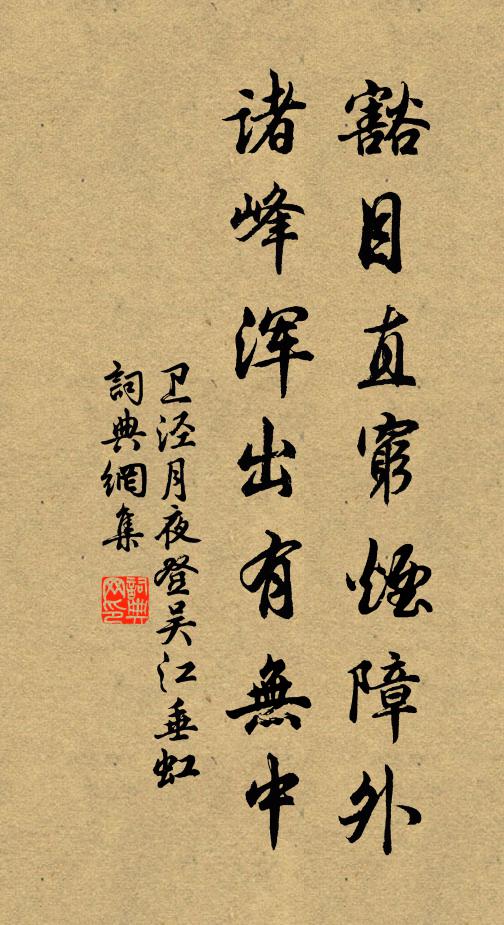 豁目直窮煙障外
諸峰浑出有無中
卫泾月夜登吴江垂虹
詞典網集
詞典网印